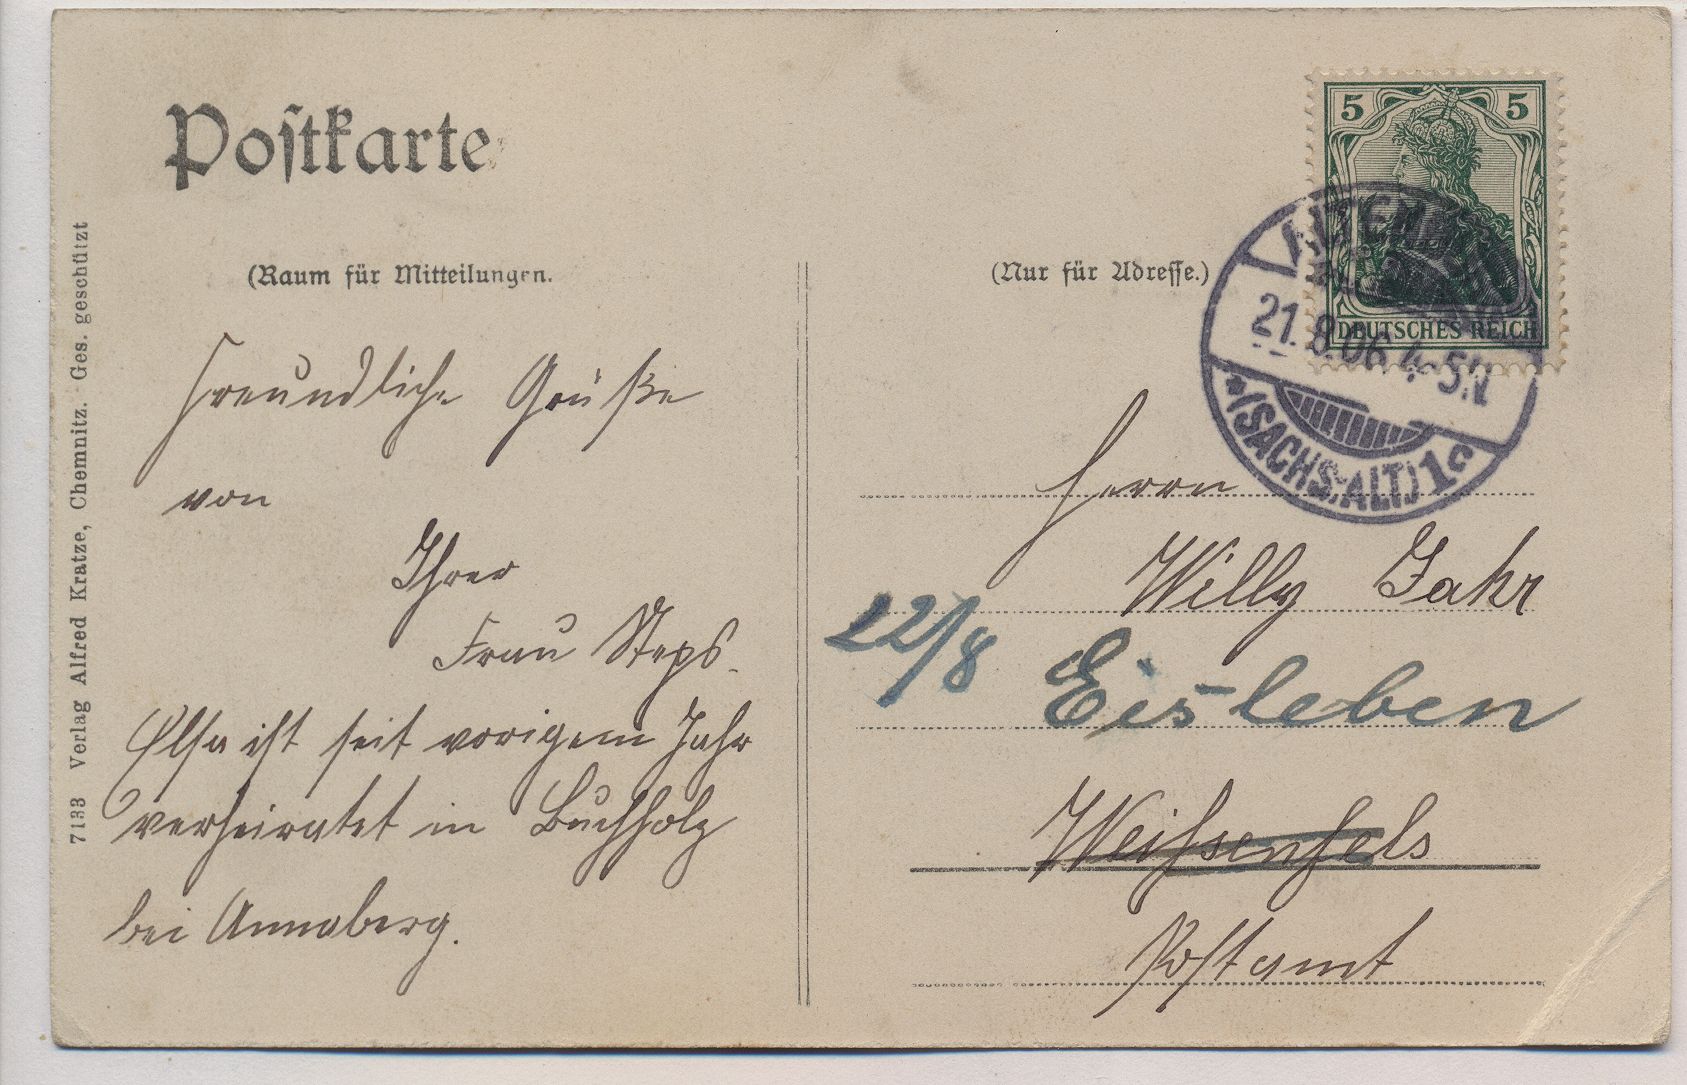 Postkarte
(Raum für Mitteilungen.
(Nur für Adresse.)
5 5
DEUTSCHES REICH
21.8.06.4-5N.
*(SACHS:ALT)1c
Freundliche Grüße
von
Ihrer
Frau Steps.
Elsa ist seit vorigem Jahr
verheiratet in Buchholz
bei Annaberg.
Herrn
Willy Jahr
22/8 Eisleben
Weißenfels
Postamt
7133 Verlag Alfred Kratze, Chemnitz. Ges. geschützt